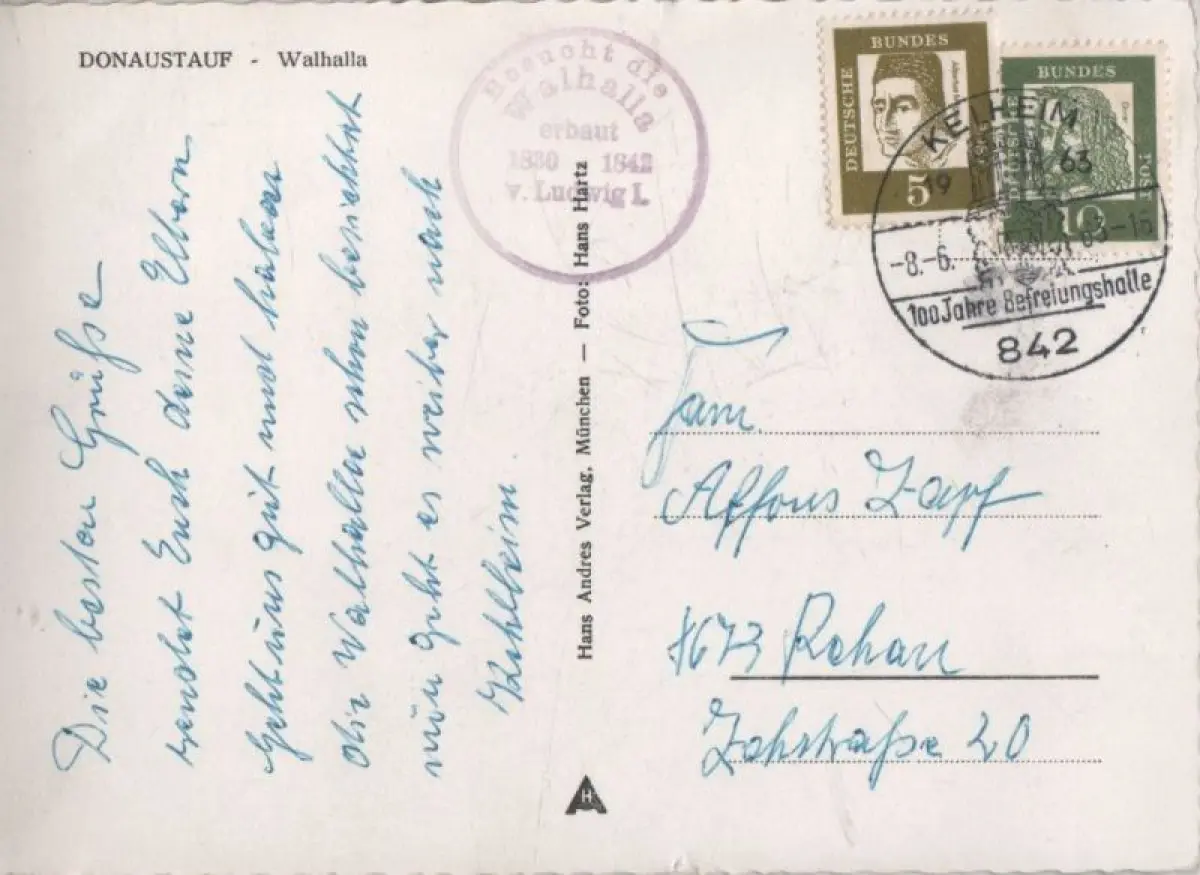 DONAUSTAUF - Walhalla
Besucht die
Walhalla
erbaut
1830 1842
v. Ludwig I.
DEUTSCHE
BUNDES
5
DEUTSCHE
BUNDES
POST
10
KELHEIM
19 63
-8.-6. 63-15
100 Jahre Befreiungshalle
842
Die besten Grüße
sendet Euch deine Eltern
geht uns gut und haben
die Walhalla schon besichtet
nun geht es weiter nach
Kehlheim
Hans Andres Verlag, München — Foto: Hans Hartz
H
Fam.
Alfons Zapf
8673 Rehau
20